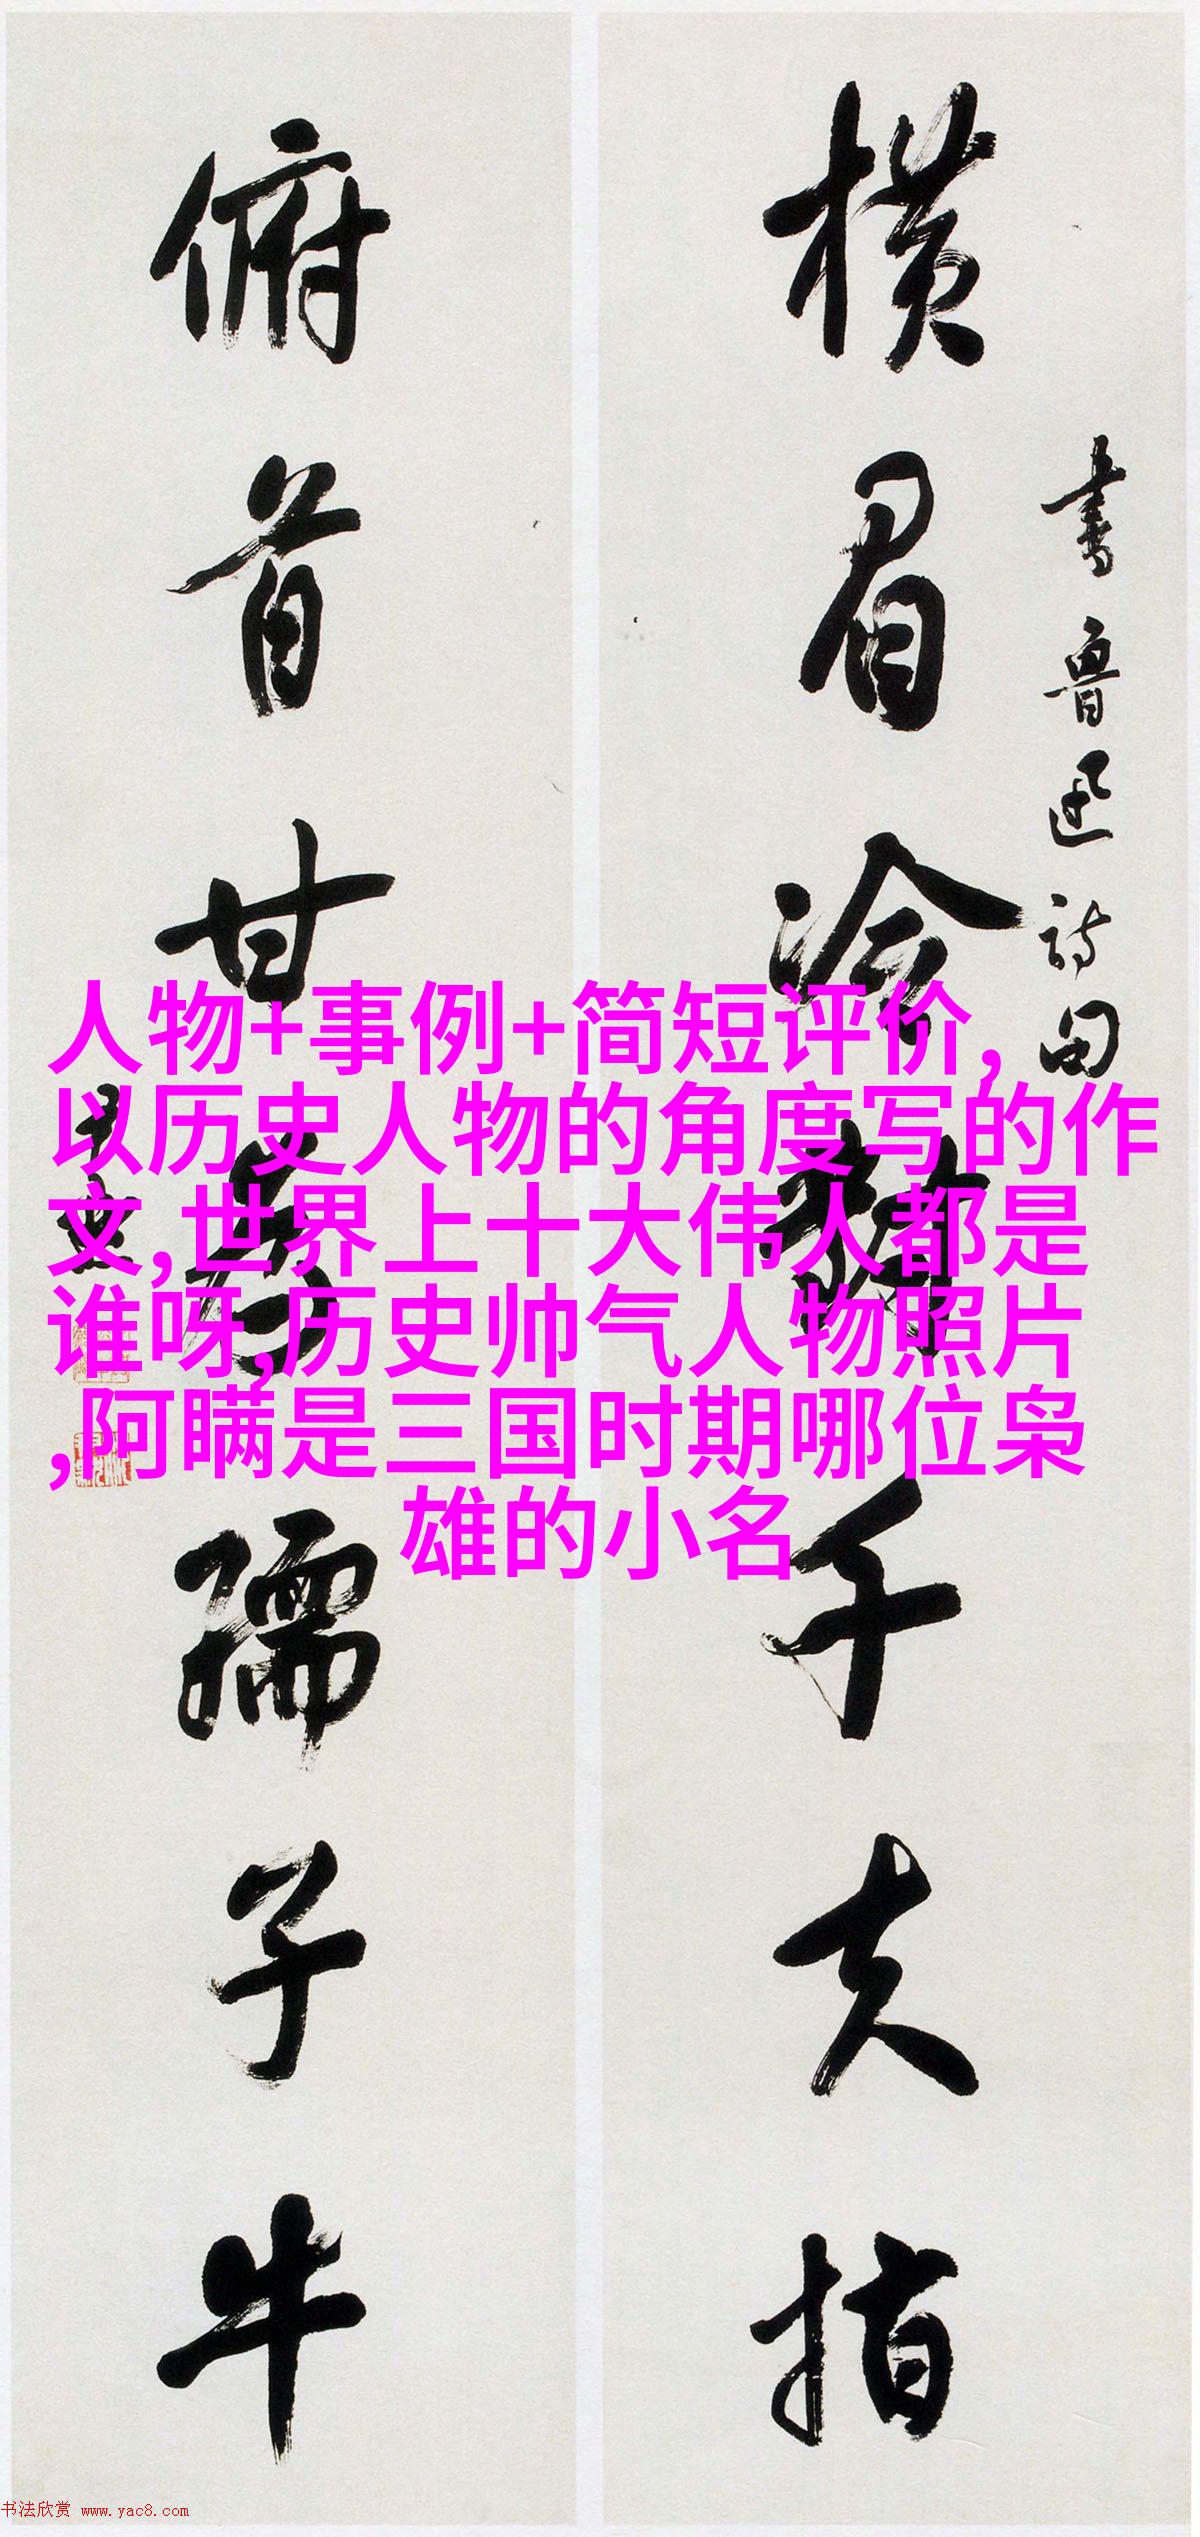 横眉冷對千夫指
书鲁迅诗句
俯首甘为孺子牛
人物+事例+简短评价,
以历史人物的角度写的作
文,世界上十大伟人都是
谁呀,历史帅气人物照片
,阿瞒是三国时期哪位枭
雄的小名
书法欣赏 www.yac8.com